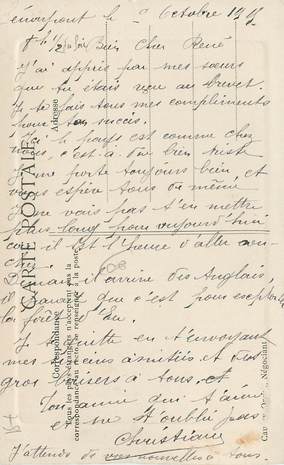 le Octobre 19
8h 1/2 du soir Bien cher René
J'ai appris par mes sœurs
que tu étais reçu au brevet.
Je te fais tous mes compliments
pour ton succès.
Ici le pays est comme chez
vous, c'est-à-dire bien triste
Je me porte toujours bien, et
vous espère tous de même
Je ne vais pas t'en mettre
plus long pour aujourd'hui
car il est l'heure d'aller au
Demain il arrive des Anglais,
il paraît que c'est pour exploiter
la forêt d'Eu.
Je te quitte en t'envoyant
mes sincères amitiés et de
gros baisers à tous, et
Ton amie qui t'aime
et ne t'oublie pas
Christiane
J'attends de vos nouvelles à tous
CARTE POSTALE
Correspondance
Adresse
Tous les pays étrangers n'acceptent pas la
correspondance au recto, se renseigner à la poste
Négociant